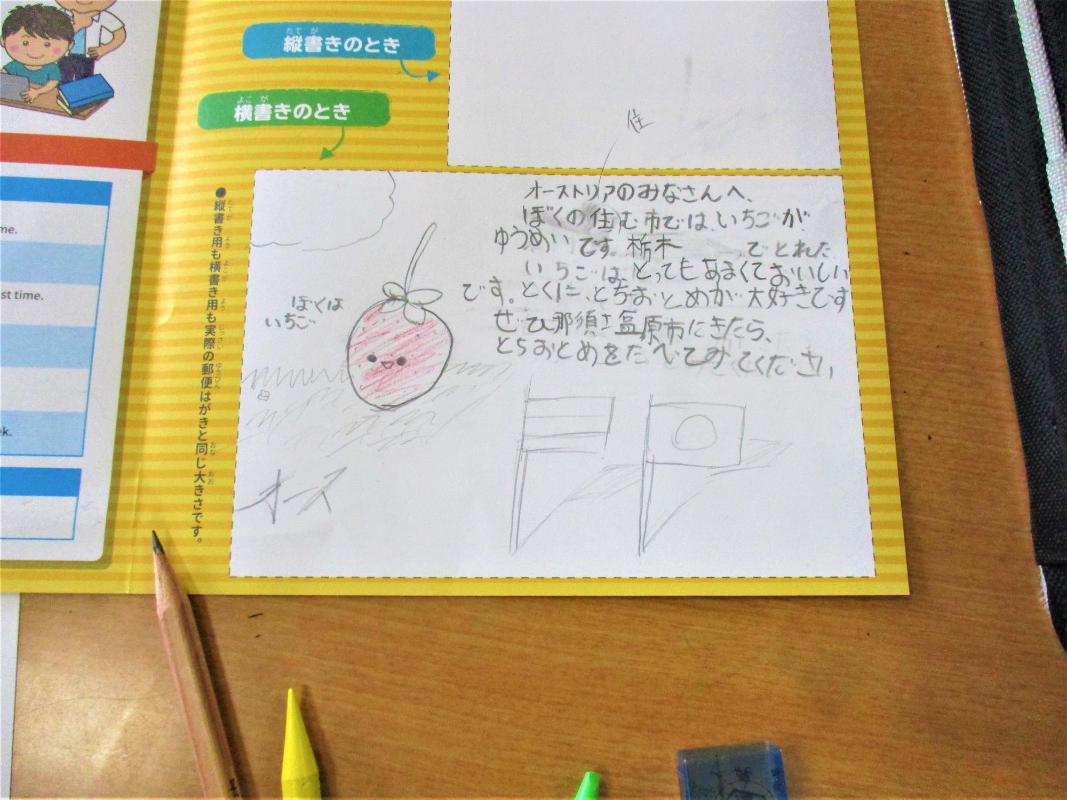 me.
st time.
k.
たてが
縦書きのとき
よこが
横書きのとき
●縦書き用も横書き用も実際の郵便はがきと同じ大きさです。
住
オーストリアのみなさんへ、
ぼくの住む市では、いちごが
ゆうめいです。栃木 でとれた
いちごは、とってもあまくておいしい
です。とくに、とちおとめが大好きです
ぜひ那須塩原市にきたら、
とちおとめをたべてみてください
ぼくは
いちご
オース